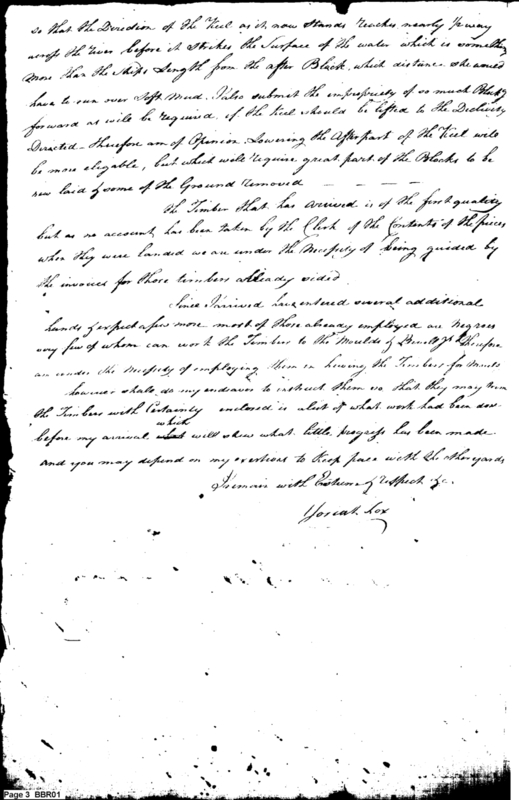 so that the Direction of the Keel as it now Stands reaches nearly ½ way
across the river before it Strikes the Surface of the water which is something
more than the Ships Length from the after Block, which distance she would
have to run over Soft mud. I also submit the impropriety of so much Blocking
forward as will be required, if the Keel should be lifted to the Declivity
Directed – therefore am of Opinion Lowering the After part of the Keel will
be more elegable, but which will require great part of the Blocks to be
new laid & some of the Ground removed — — — —
The Timber that has arrived is of the first quality
but as no account has been taken by the Clerk of the Contents of the pieces
when they were landed we are under the Necessity of being guided by
the invoices for those timbers already sided
Since I arrived have entered several additional
hands & expect a few more most of those already employed are Negroes
very few of whom can work the Timbers to the Moulds & therefore
are under the Necessity of employing them in hewing the Timbers for
however shall do my endeavor to instruct them so that they may trim
the Timbers with Certainty enclosed is a list of what work had been done
before my arrival which will shew what little progress has been made
and you may depend on my exertions to Keep pace with the other yards
I remain with Esteem & respect &c.
Josiah Fox
Page 3 BBR01